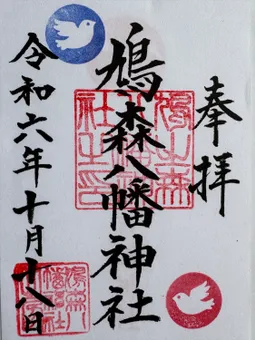 奉拝
鳩森八幡神社
令和六年十月十八日